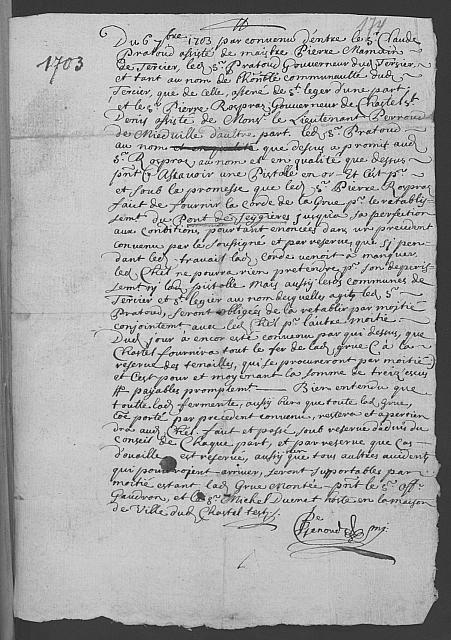 174
1703
Du 6 7bre 1703 par convenu d'entre le Sr Claude
Pratoud assisté de maistre Pierre Mamin
de Fercier, led Sr Pratoud Gouverneur dud Fercier,
et tant au nom de l'honble communaulté dud
Fercier, que de celle, de St legier d'une part,
et le Sr Pierre Rospraz Gouverneur de Chastel St
Denis assisté de Monsr le Lieutenant Perroud
de d'aultre part. led Sr Pratoud
au nom que dessus a promis aud
Sr Rospraz au nom et en qualité que dessus
pnt Asscavoir une Pistolle en or Et c'est pr
et soub la promesse que led Sr Pierre Rospraz
faict de fournir la Corde de la Grue pr le retablis
sement du Pont de Feygieres jusqu'a sa perfection
aux Conditions, pourtant enoncées dans un precedent
convenu par le soussigné et par reserve, que si pen
dant led travail lad Corde venoit a manquer,
led Chel ne pourra rien pretendre pr son deperis
sement ny lad pistolle Mais aussy lesd communes de
Fercier et St legier au nom desquelles agit led Sr
Pratoud, seront obligees de la retablir par moitié
conjointem avec led Chel pr l'autre moitié
Dud jour a encor esté convenu par qui dessus, que
Chastel fournira tout le fer de lad grue a la
reserve des tenailles, qui se procureront par moitié
et C'est pour et moyenant la somme de treize escu
payables promptemt Bien entendu que
toutte lad fermente, aussy bien que toute lad Grue,
porté par precedent convenu, restera et apertien
dra aud Chel faict et passé, soub reserve d'advis du
conseil de Chaque part, et par reserve que Cas
d'ovaille est reservé, aussy que tous aultres accidents
qui pourroyent arriver, seront supportable par
moitié estant lad Grue Montée pnt le Sr offr
Gaudron, et le Sr Michel Ducret hoste en la maison
de Ville dud Chastel test
Genoud